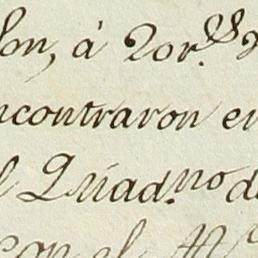 son, á 2 or.^s
ncontraron en
l Quad.^no d
con el M